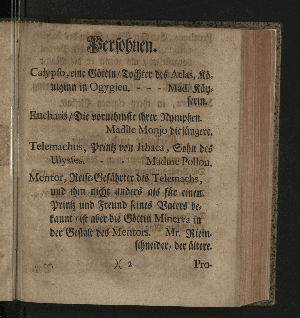 Persohnen.
Calypso, eine Göttin/ Tochter des Atlas, Kö-
niginn in Ogygien. - - - Mad. Käy-
serin.
Eucharis/ Die vornehmste ihrer Nymphen.
Madlle Monjo die jüngere.
Telemachus, Printz von Ithaca, Sohn des
Ulysses. - Madme Pollou.
Mentor, Reise-Gefährter des Telemachs,
und ihm nicht anders als für einen
Printz und Freund seines Vaters be-
kannt/ ist aber die Göttin Minerva in
der Gestalt des Mentors. Mr. Riem-
schneider, der ältere.
)( 2 Pro-